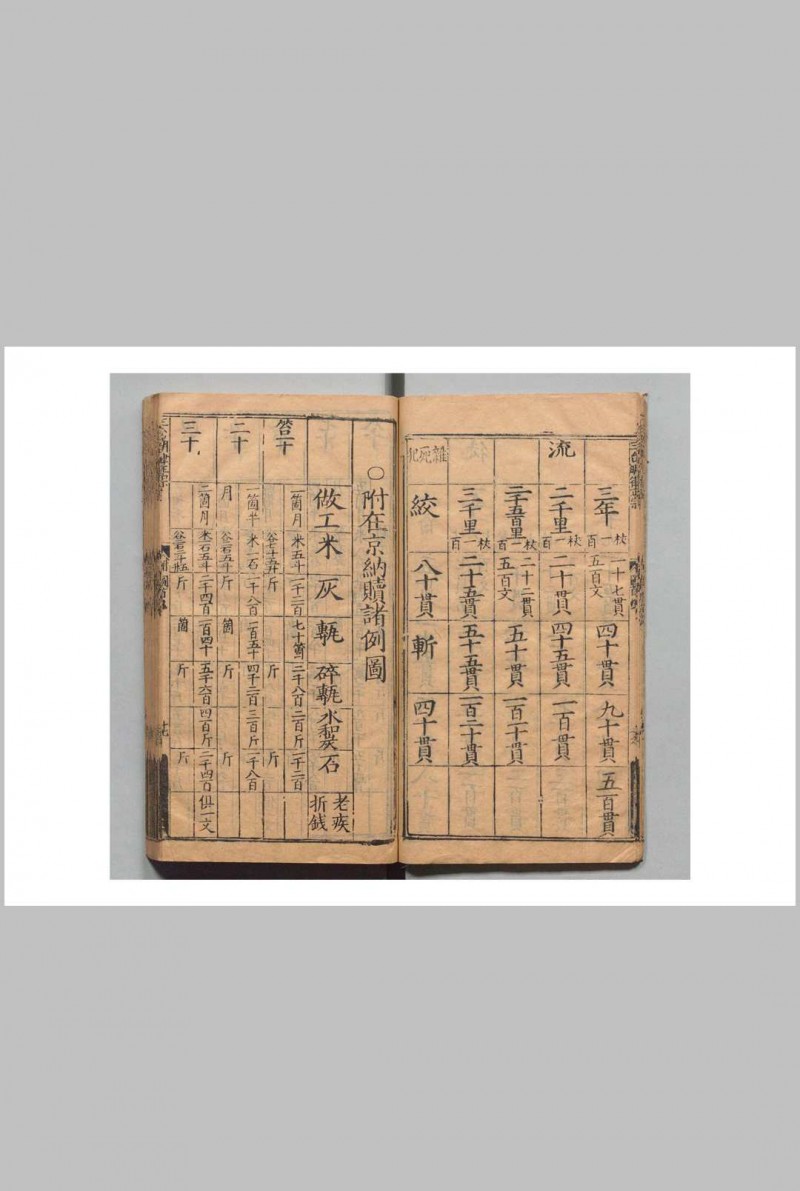 三年 杖一百 一十七貫五百文 四十貫 九十貫 五百貫
流
二千里 杖一百 二十貫 四十五貫 一百貫
二千五百里 杖一百 二十二貫五百文 五十貫 一百一十貫
三千里 杖一百 二十五貫 五十五貫 一百二十貫
雜死犯
絞 八十貫 斬 四十貫
○附在京納贖諸例圖
做工 米 灰 甎 碎甎 水和炭 石 老疾折錢
笞一十 一箇月 米五斗 一千二百斤 七十箇 二千八百斤 二百斤 一千二百斤
二十 一箇半月 米一石 一千八百斤 一百五箇 四千二百斤 三百斤 一千八百斤
三十 二箇月 二千四百斤 一百四十箇 五千六百斤 四百斤 二千四百斤 俱一文